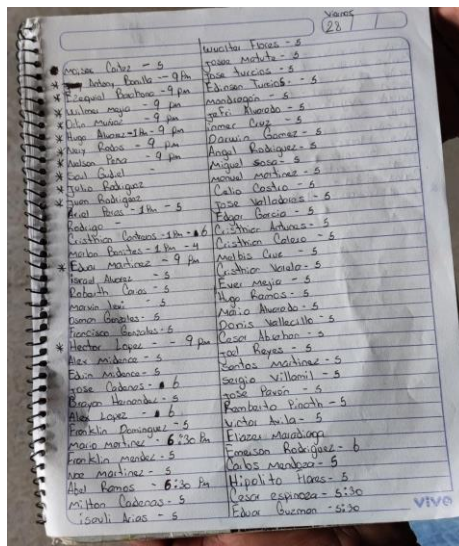 Viernes
28
Moises Cortez - 5
* Antony Bonilla - 9 pm
* Ezequiel Barahona - 9 pm
* Wilmer mejia - 9 pm
* Dilin Muñoz - 9 pm
* Hugo Alvarez - 1 Pm - 9 pm
* Nery Rodas - 9 pm
* Nelson Peña - 9 pm
* Saul Gudiel -
* Julio Rodriguez
* Juan Rodriguez
Ariel Peras - 1 Pm - 5
Rodrigo -
Cristhian Contreras - 1 Pm - 6
Marlon Benitez - 1 Pm - 4
* Eduar Martinez - 9 Pm
israel Alvarez - 5
Roberth Carias - 5
Marvin - 5
Osman Gonzales - 5
Francisco Gonzales - 5
* Hector Lopez - - 9 Pm
Alex Midence - 5
Edwin Midence - 5
Jose Cadenas - 6
Brayan Hernandez - 5
Alex Lopez - 6
Franklin Dominguez - 5
Mario martinez - 6:30 Pm
Franklin Mendez - 5
Noe martinez - 5
Abel Ramos - 6:30 Pm
Milton Cadenas - 5
isauli Arias - 5
Wualter Flores - 5
Josee Matute - 5
Jose turcios - 5
Edinson Turcios - 5
Mondragon - 5
Jefri Alvarado - 5
inmer Cruz - 5
Darwin Gomez - 5
Angel Rodriguez - 5
Miguel Sosa - 5
manuel martinez - 5
Celio Castro - 5
Jose Valladares - 5
Edgar Garcia - 5
Cristhier Antunes - 5
Cristhian Calero - 5
Melbis Cruz - 5
Cristhian Varela - 5
Ever Mejia - 5
Hugo Ramos - 5
Mario Alvarado - 5
Donis Vallecillo - 5
Cesar Abrahan - 5
Joel Reyes - 5
Santos Martinez - 5
Sergio Villamil - 5
Jose Pavón - 5
Remberto - 5
Victor Avila - 5
Eliazar Maradiaga
Emerson Rodriguez - 6
Carlos Mendoza - 5
Hipolito Flores - 5
Cesar espinoza - 5:30
Eduar Guzman - 5:30
vivo